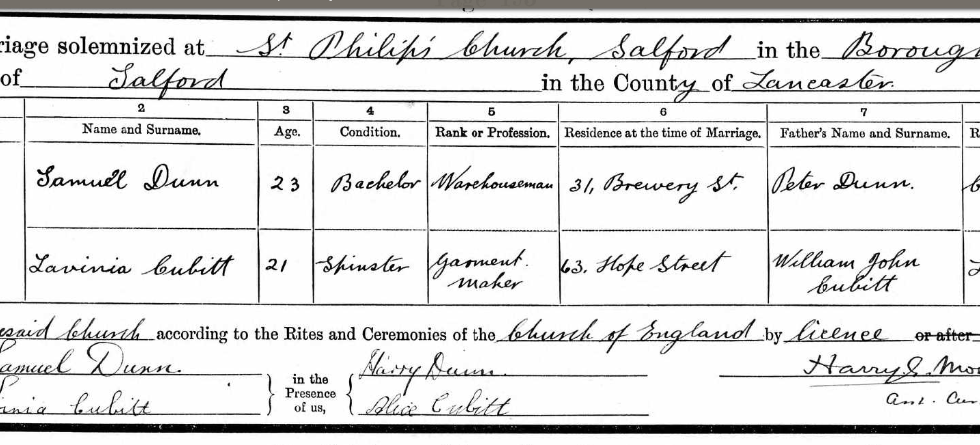 riage solemnized at St Philip's Church, Salford in the Boroug
of Salford in the County of Lancaster.
2 3 4 5 6 7
Name and Surname. Age. Condition. Rank or Profession. Residence at the time of Marriage. Father's Name and Surname. R
Samuel Dunn 23 Bachelor Warehouseman 31, Brewery St. Peter Dunn.
Lavinia Cubitt 21 Spinster Garment maker 63. Hope Street William John Cubitt
esaid Church according to the Rites and Ceremonies of the Church of England by licence or after
amuel Dunn. in the Presence of us, Harry Dunn. Harry
inia Cubitt Alice Cubitt